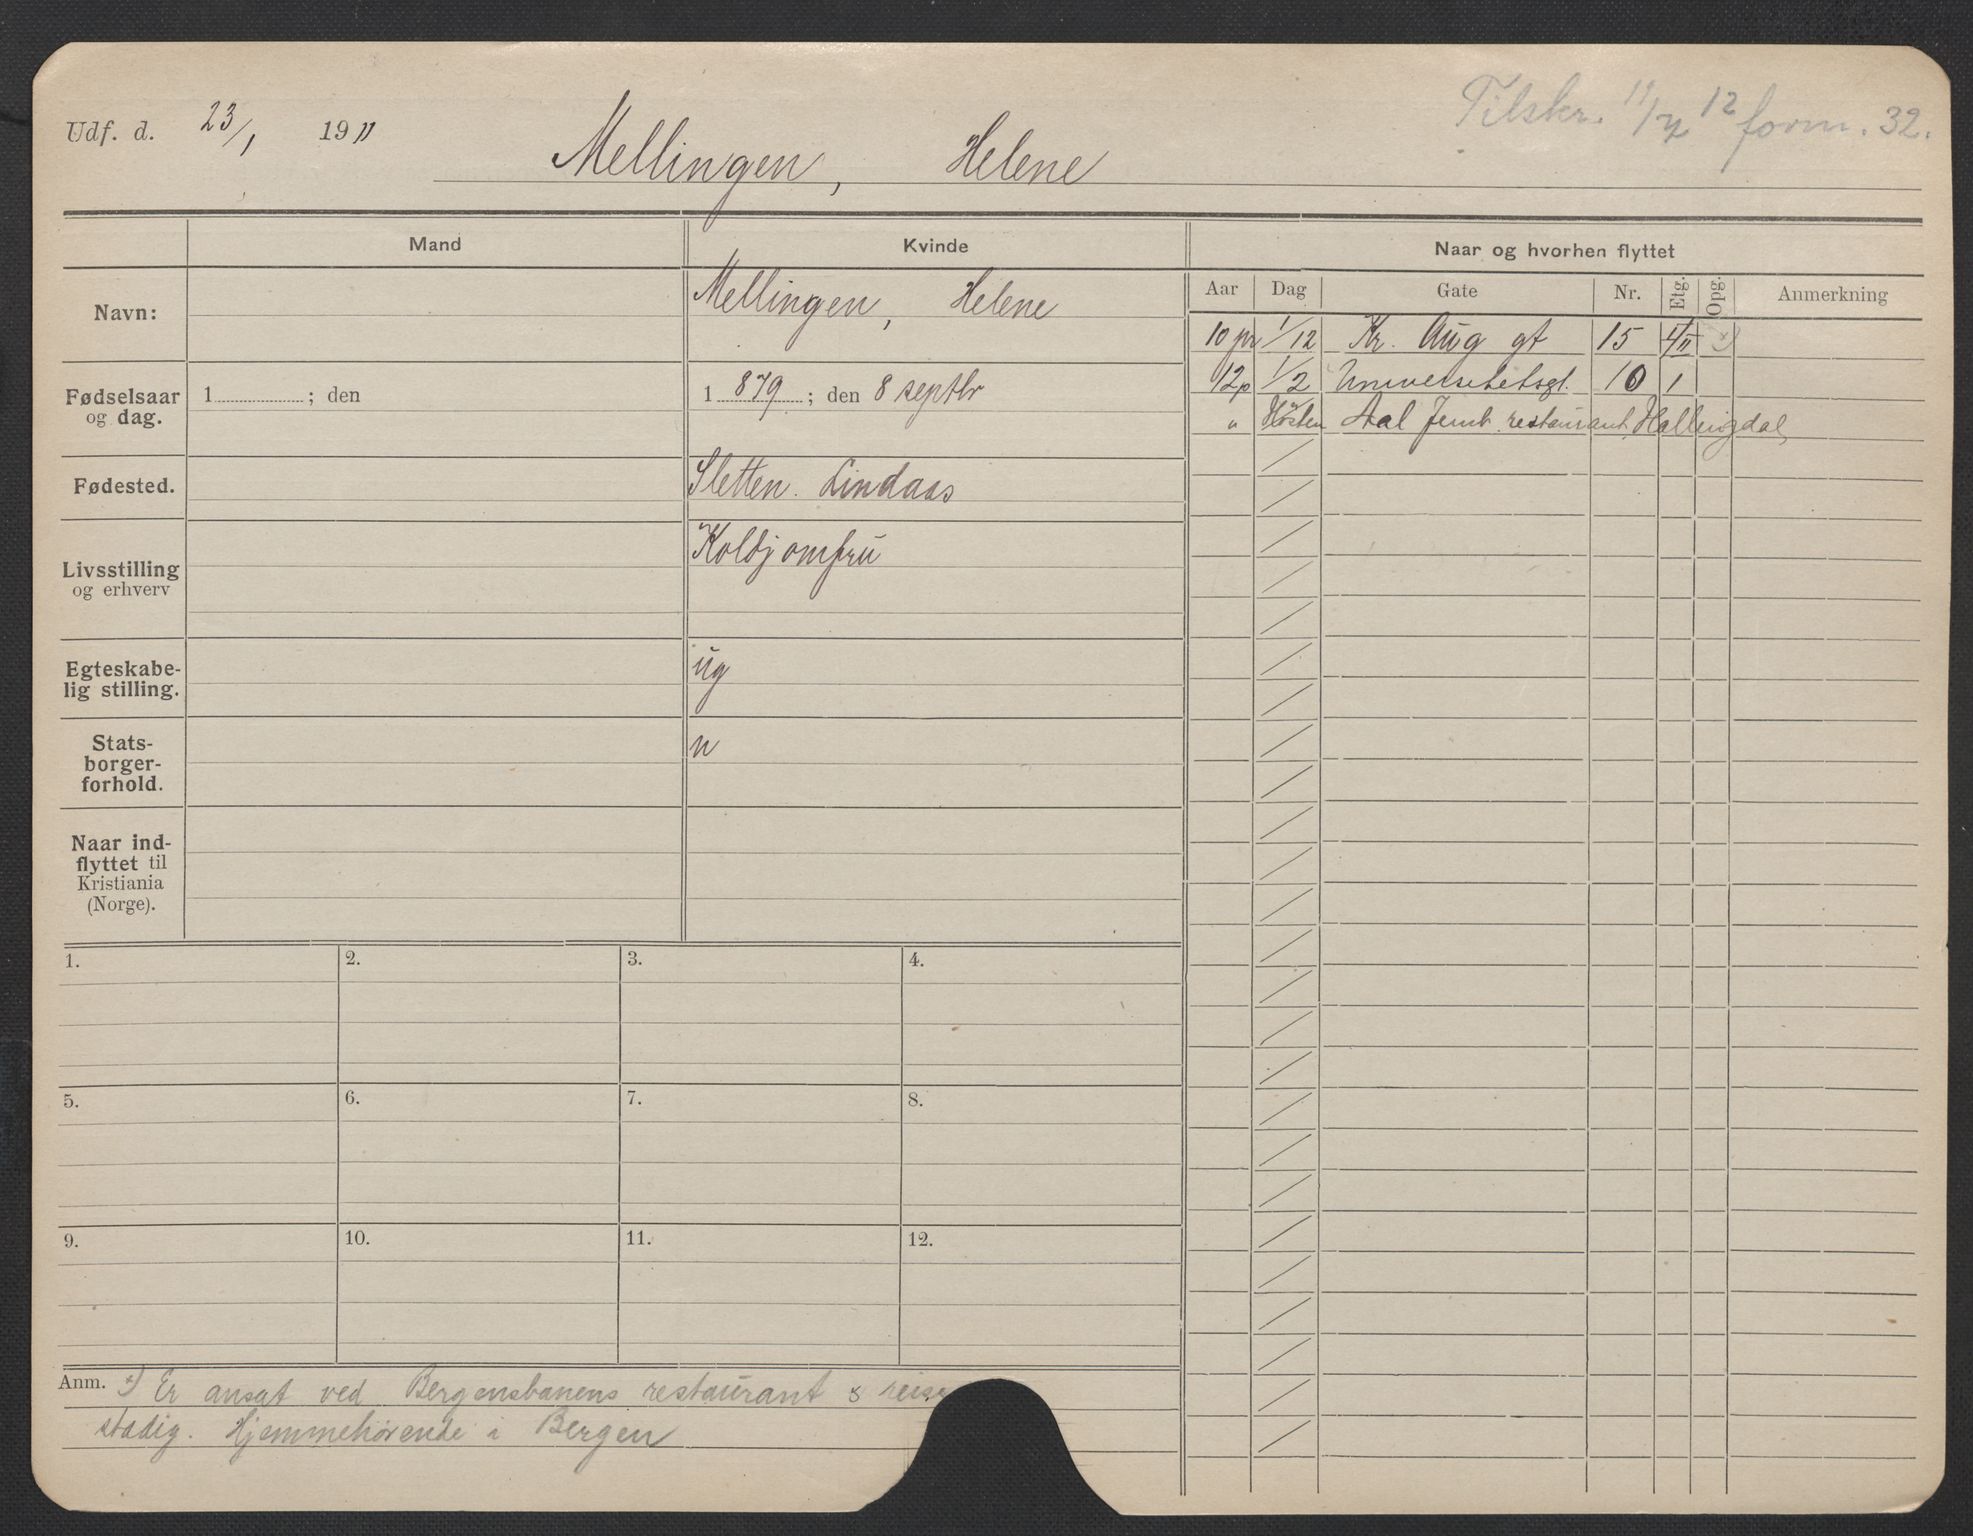 Tilskr. 11/7 12 form. 32.
Udf. d. 23/1 1911
Mellingen, Helene
Mand Kvinde Naar og hvorhen flyttet
Aar Dag Gate Nr. Etg. Opg. Anmerkning
Navn: Mellingen, Helene
10 pr 1/12 Kr. Aug gt 15 4/II x)
12p 1/2 Universitetsgt. 10 1
" Høsten Aal Jernb. restaurant, Hallingdal,
Fødselsaar og dag. 1 ; den 1 879 ; den 8 septbr
Fødested. Sletten. Lindaas
Livsstilling og erhverv Koldjomfru
Egteskabe-
lig stilling. ug
Stats-
borger-
forhold. n
Naar ind-
flyttet til
Kristiania
(Norge).
1. 2. 3. 4.
5. 6. 7. 8.
9. 10. 11. 12.
Anm. x) Er ansat ved Bergensbanens restaurant &
stadig. Hjemmehørende i Bergen